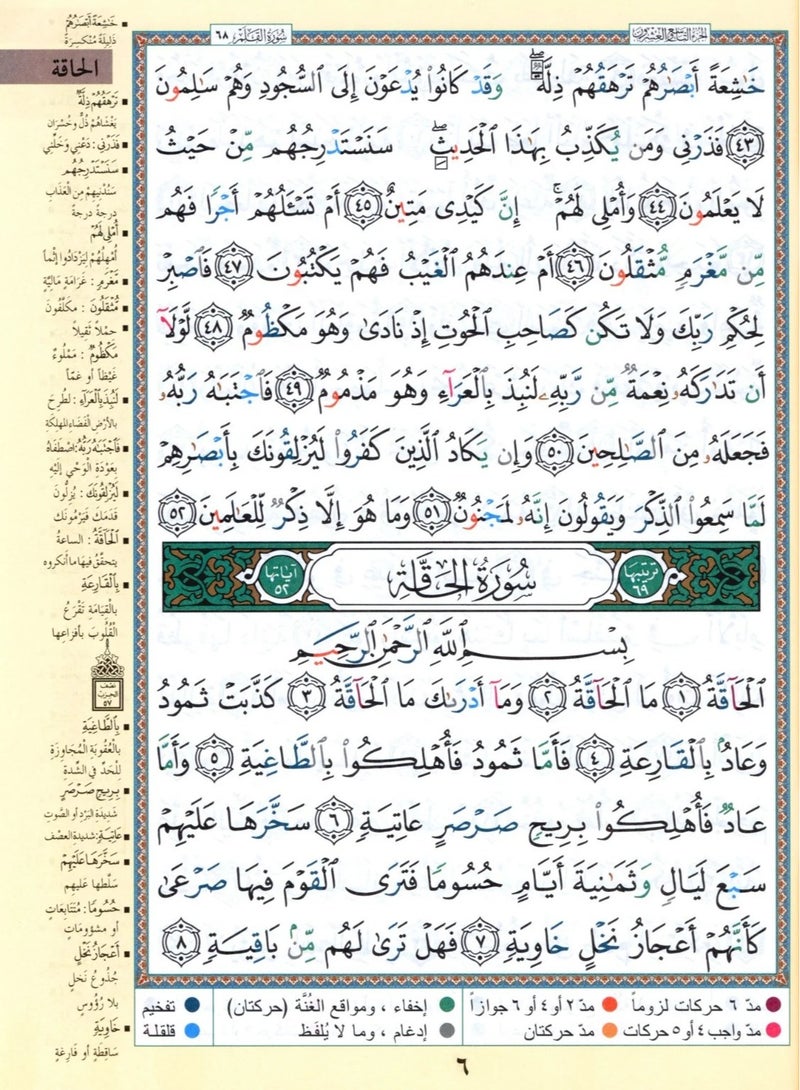 الجزء التاسع والعشرون
سورة القلم ٦٨
خَٰشِعَةً أَبْصَٰرُهُمْ تَرْهَقُهُمْ ذِلَّةٌ ۖ وَقَدْ كَانُوا۟ يُدْعَوْنَ إِلَى ٱلسُّجُودِ وَهُمْ سَٰلِمُونَ
﴿٤٣﴾ فَذَرْنِى وَمَن يُكَذِّبُ بِهَٰذَا ٱلْحَدِيثِ ۖ سَنَسْتَدْرِجُهُم مِّنْ حَيْثُ
لَا يَعْلَمُونَ ﴿٤٤﴾ وَأُمْلِى لَهُمْ ۚ إِنَّ كَيْدِى مَتِينٌ ﴿٤٥﴾ أَمْ تَسْـَٔلُهُمْ أَجْرًا فَهُم
مِّن مَّغْرَمٍ مُّثْقَلُونَ ﴿٤٦﴾ أَمْ عِندَهُمُ ٱلْغَيْبُ فَهُمْ يَكْتُبُونَ ﴿٤٧﴾ فَٱصْبِرْ
لِحُكْمِ رَبِّكَ وَلَا تَكُن كَصَاحِبِ ٱلْحُوتِ إِذْ نَادَىٰ وَهُوَ مَكْظُومٌ ﴿٤٨﴾ لَّوْلَآ
أَن تَدَٰرَكَهُۥ نِعْمَةٌ مِّن رَّبِّهِۦ لَنُبِذَ بِٱلْعَرَآءِ وَهُوَ مَذْمُومٌ ﴿٤٩﴾ فَٱجْتَبَٰهُ رَبُّهُۥ
فَجَعَلَهُۥ مِنَ ٱلصَّٰلِحِينَ ﴿٥٠﴾ وَإِن يَكَادُ ٱلَّذِينَ كَفَرُوا۟ لَيُزْلِقُونَكَ بِأَبْصَٰرِهِمْ
لَمَّا سَمِعُوا۟ ٱلذِّكْرَ وَيَقُولُونَ إِنَّهُۥ لَمَجْنُونٌ ﴿٥١﴾ وَمَا هُوَ إِلَّا ذِكْرٌ لِّلْعَٰلَمِينَ ﴿٥٢﴾
ترتيبها ٦٩ سُورَةُ الحَاقَّة آياتها ٥٢
بِسْمِ ٱللَّهِ ٱلرَّحْمَٰنِ ٱلرَّحِيمِ
ٱلْحَآقَّةُ ﴿١﴾ مَا ٱلْحَآقَّةُ ﴿٢﴾ وَمَآ أَدْرَىٰكَ مَا ٱلْحَآقَّةُ ﴿٣﴾ كَذَّبَتْ ثَمُودُ
وَعَادٌۢ بِٱلْقَارِعَةِ ﴿٤﴾ فَأَمَّا ثَمُودُ فَأُهْلِكُوا۟ بِٱلطَّاغِيَةِ ﴿٥﴾ وَأَمَّا
عَادٌ فَأُهْلِكُوا۟ بِرِيحٍ صَرْصَرٍ عَاتِيَةٍ ﴿٦﴾ سَخَّرَهَا عَلَيْهِمْ
سَبْعَ لَيَالٍ وَثَمَٰنِيَةَ أَيَّامٍ حُسُومًا فَتَرَى ٱلْقَوْمَ فِيهَا صَرْعَىٰ
كَأَنَّهُمْ أَعْجَازُ نَخْلٍ خَاوِيَةٍ ﴿٧﴾ فَهَلْ تَرَىٰ لَهُم مِّنۢ بَاقِيَةٍ ﴿٨﴾
خَٰشِعَةً أَبْصَٰرُهُمْ
ذليلة منكسرة
الحاقة
تَرْهَقُهُمْ ذِلَّةٌ
يغشاهم ذلّ وخسران
فَذَرْنِي: دعني وخلّني
سَنَسْتَدْرِجُهُم
سندنيهم من العذاب
درجة درجة
أُمْلِي لَهُمْ
أمهلهم ليزدادوا إثماً
مَغْرَمٍ: غرامة مالية
مُثْقَلُونَ: مكلّفون
حملاً ثقيلاً
مَكْظُومٌ: مملوء
غيظاً أو غمّاً
لَنُبِذَ بِالْعَرَاءِ: لطرح
بالأرض الفضاء المهلكة
فَاجْتَبَٰهُ رَبُّهُ: اصطفاه
بعودة الوحي إليه
لَيُزْلِقُونَكَ: يزلّون
قدمك فيرمونك
الْحَاقَّةُ: الساعة
يتحقق فيها ما أنكروه
بِالْقَارِعَةِ
بالقيامة تقرع
القلوب بأفزاعها
نصف الحزب ٥٧
بِالطَّاغِيَةِ
بالعقوبة المجاوزة
للحدّ في الشدة
بِرِيحٍ صَرْصَرٍ
شديدة البرد أو الصوت
عَاتِيَةٍ: شديدة العصف
سَخَّرَهَا عَلَيْهِمْ
سلّطها عليهم
حُسُوماً: متتابعات
أو مشؤومات
أَعْجَازُ نَخْلٍ
جذوع نخل
بلا رؤوس
خَاوِيَةٍ
ساقطة أو فارغة
مدّ ٦ حركات لزوماً مدّ ٢ أو ٤ أو ٦ جوازاً إخفاء، ومواقع الغُنَّة (حركتان) تفخيم
مدّ واجب ٤ أو ٥ حركات مدّ حركتان إدغام، وما لا يُلفَظ قلقلة
٦